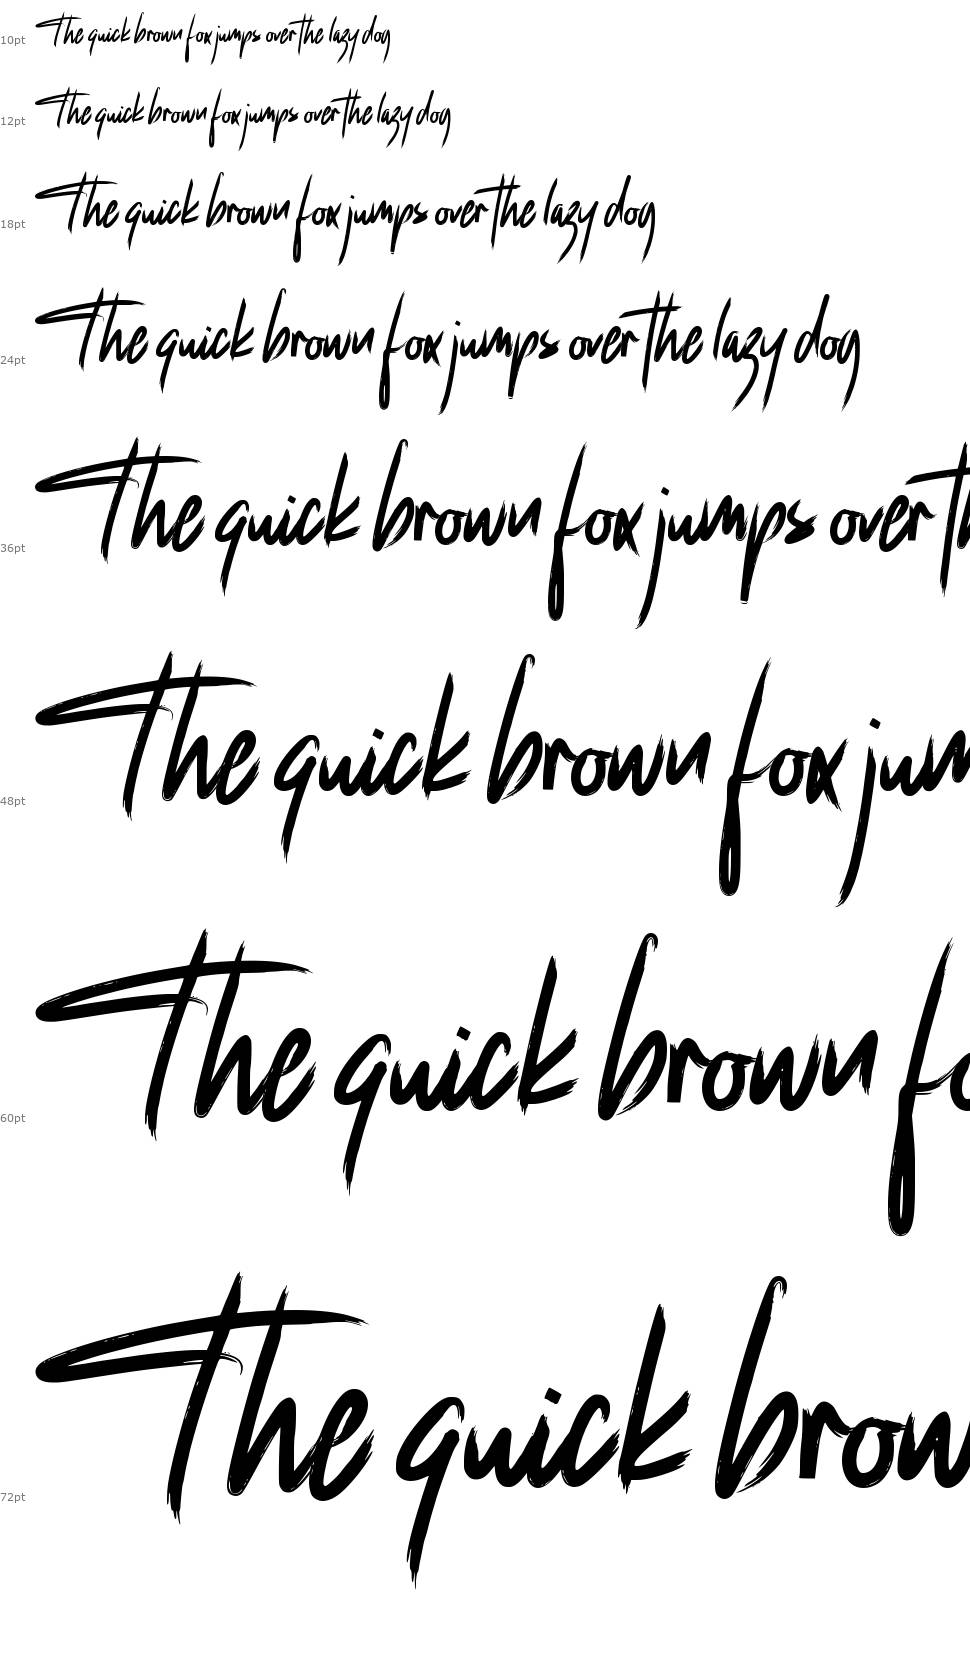 10pt The quick brown fox jumps over the lazy dog
12pt The quick brown fox jumps over the lazy dog
18pt The quick brown fox jumps over the lazy dog
24pt The quick brown fox jumps over the lazy dog
36pt The quick brown fox jumps over th
48pt The quick brown fox jum
60pt The quick brown fo
72pt The quick brow